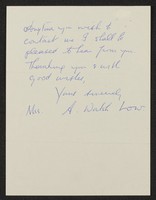 Anytime you wish to
contact me I shall be
pleased to hear from you
Thanking you & with
good wishes.
Yours sincerely
Mrs A. Walsh Low